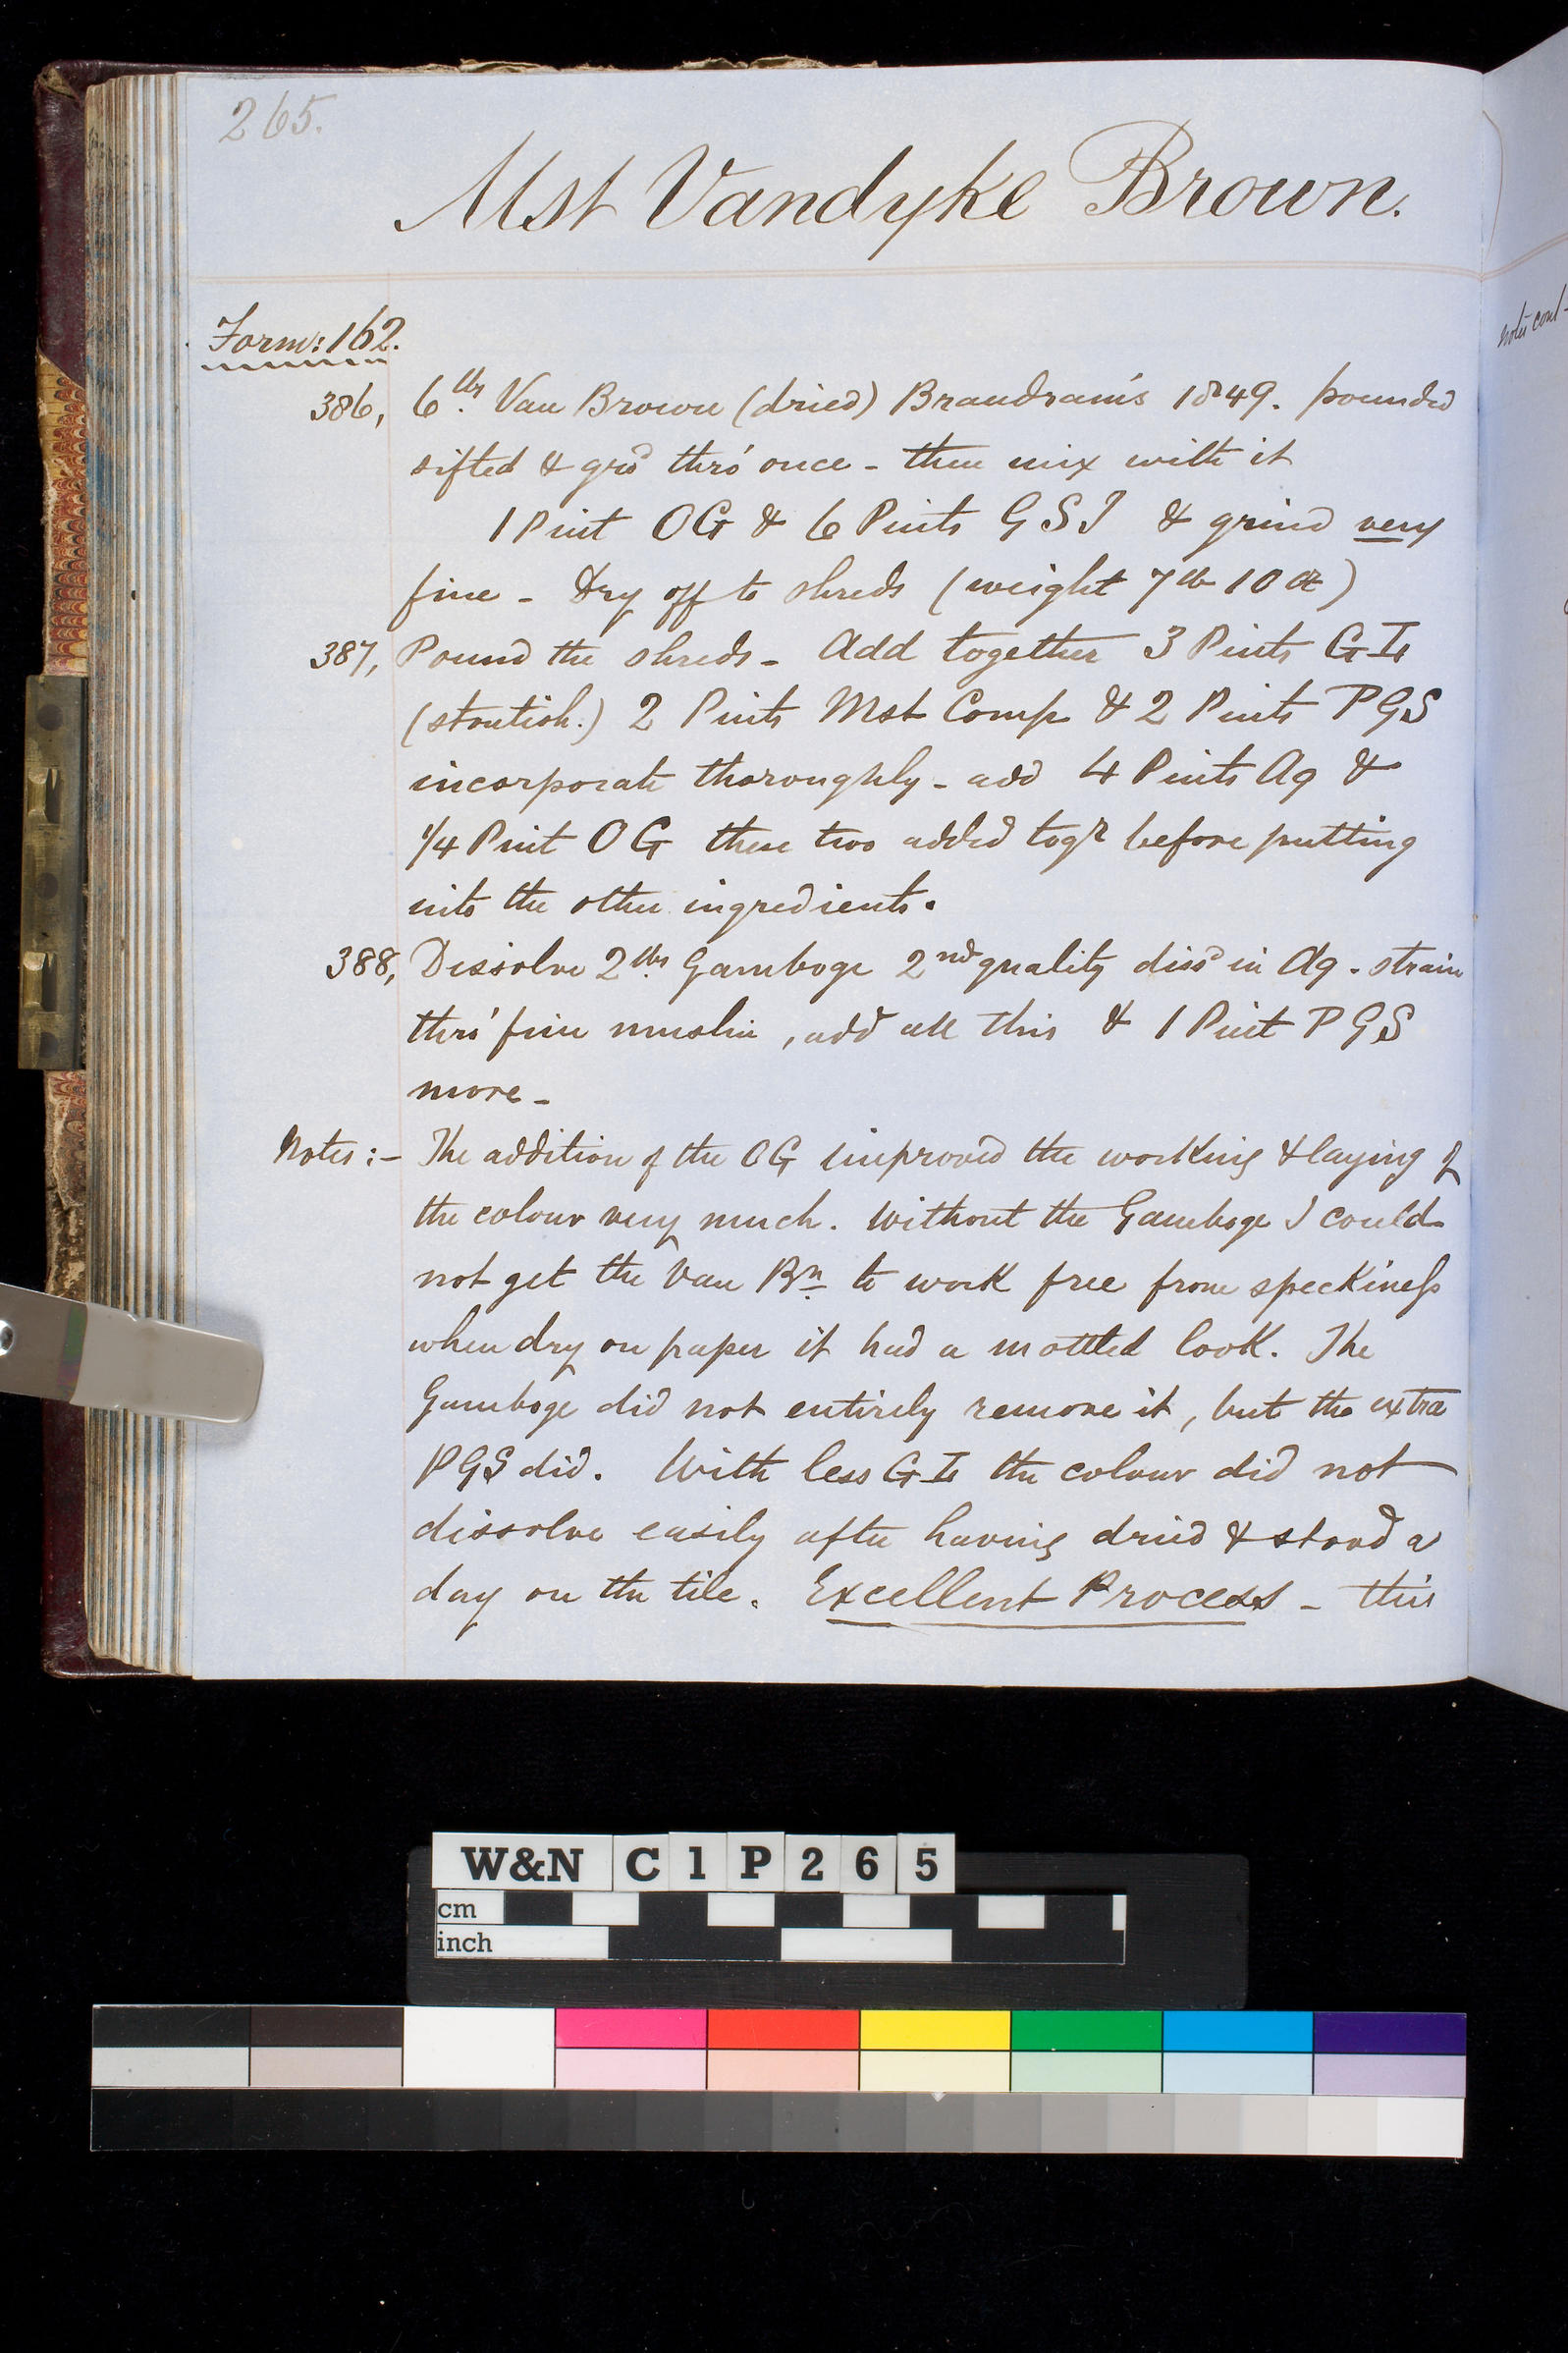 265.
Mst Vandyke Brown.
Form: 162.
386, 6 lbs Van Brown (dried) Brandram's 1849. pounded
sifted & grd thro' once - then mix with it
1 Pint OG & 6 Pints GSI & grind very
fine - Dry off to shreds (weight 7 lb 10 oz)
387, Pound the shreds - Add together 3 Pints GIs
(stoutish.) 2 Pints Mst Comp & 2 Pints PGS
incorporate thoroughly - add 4 Pints Aq &
1/4 Pint OG these two added togr before putting
into the other ingredients.
388, Dissolve 2 lbs Gamboge 2nd quality dissd in Aq - strain
thro' fine muslin, add all this & 1 Pint PGS
more -
Notes :- The addition of the OG improved the working & laying of
the colour very much. Without the Gamboge I could
not get the Van Bn to work free from speckiness
when dry on paper it had a mottled look. The
Gamboge did not entirely remove it, but the extra
PGS did. With less GIs the colour did not
dissolve easily after having dried & stood a
day on the tile. Excellent Process - this
notes cont-
W&N C1P265
cm
inch